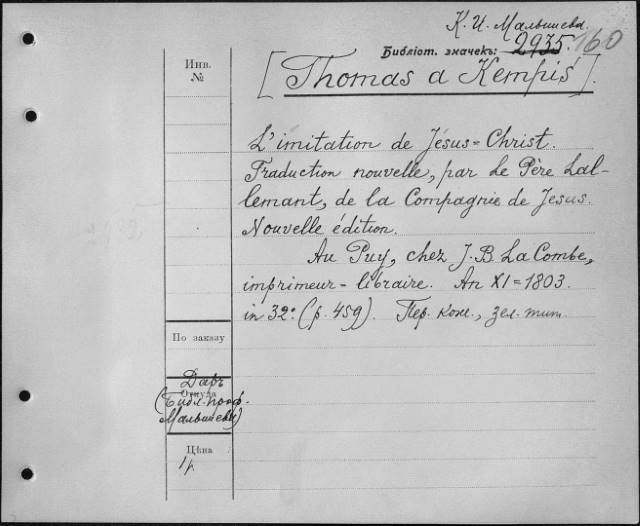 К. И. Малышева.
Библіот. значекъ: 2935. 160
Инв. №
[Thomas a Kempis].
L'imitation de Jésus=Christ.
Traduction nouvelle, par le Père Lal-
lemant, de la Compagnie de Jesus.
Nouvelle édition.
Au Puy, chez J. B. La Combe,
imprimeur-libraire. An XI=1803.
in 32º (p. 459). Пер. кож., зел. тит.
По заказу
Даръ
Откуда
(Библ. проф.
Малышева)
Цѣна
1 р